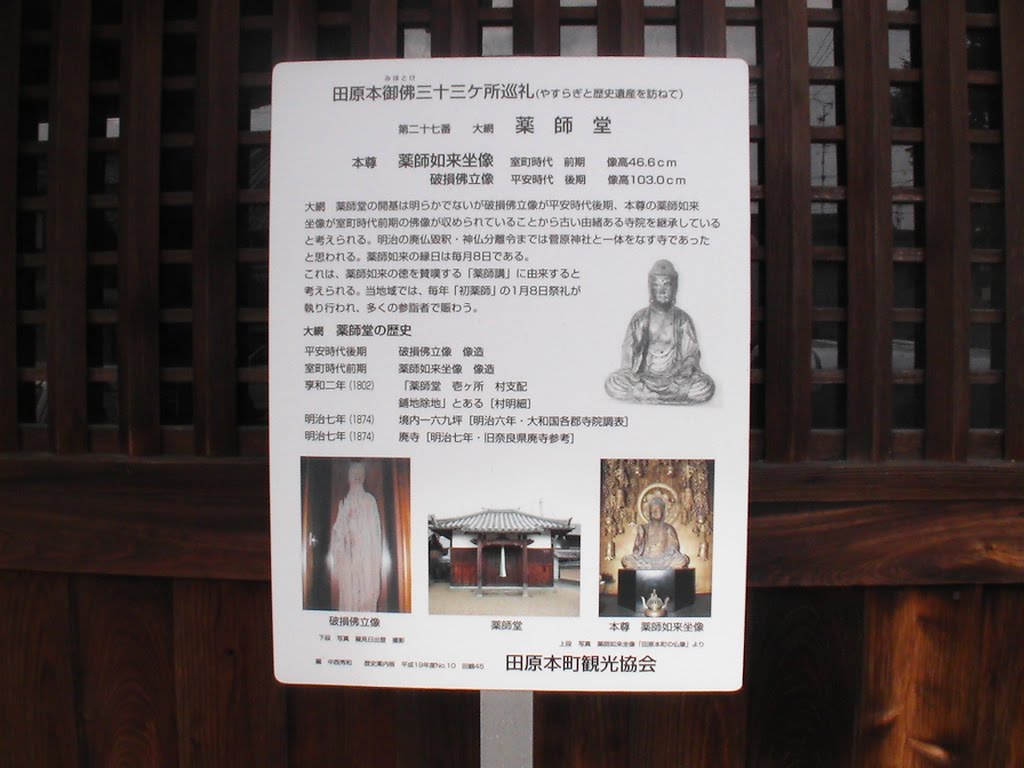 みほとけ
田原本御佛三十三ケ所巡礼(やすらぎと歴史遺産を訪ねて)
第二十七番 大網 薬師堂
本尊 薬師如来坐像 室町時代 前期 像高46.6cm
破損佛立像 平安時代 後期 像高103.0cm
大網 薬師堂の開基は明らかでないが破損佛立像が平安時代後期、本尊の薬師如来
坐像が室町時代前期の佛像が収められていることから古い由緒ある寺院を継承している
と考えられる。明治の廃仏毀釈・神仏分離令までは菅原神社と一体をなす寺であった
と思われる。薬師如来の縁日は毎月8日である。
これは、薬師如来の徳を賛嘆する「薬師講」に由来すると
考えられる。当地域では、毎年「初薬師」の1月8日祭礼が
執り行われ、多くの参詣者で賑わう。
大網 薬師堂の歴史
平安時代後期 破損佛立像 像造
室町時代前期 薬師如来坐像 像造
享和二年(1802) 「薬師堂 壱ヶ所 村支配
鋪地除地」とある[村明細]
明治七年(1874) 境内一六九坪[明治六年・大和国各郡寺院調表]
明治七年(1874) 廃寺[明治七年・旧奈良県廃寺参考]
破損佛立像
薬師堂
本尊 薬師如来坐像
下段 写真 龍見日出暦 撮影
上段 写真 薬師如来坐像「田原本町の仏像」より
編 中西秀和 歴史案内板 平成19年度No.10 田観45
田原本町観光協会